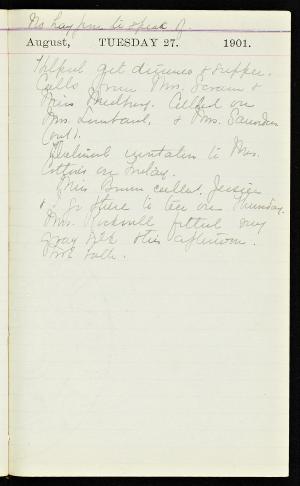 No hay fever to speak of
August, TUESDAY 27. 1901.
Helped get dinner & supper.
Calls from Mrs. &
Miss Medbury. Called on
Mrs. Lombard, & Mrs. Saunders
(out).
Declined invitation to Mrs.
on Friday.
Miss called. Jessie
& I go there to tea on Thursday.
Mrs. Rockwell fitted my
gray silk this afternoon.
Took walk.